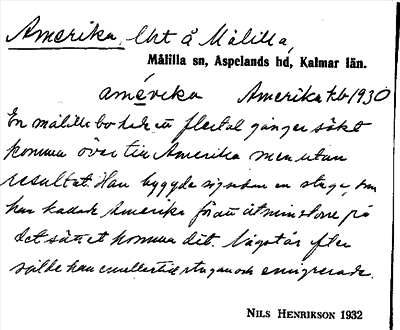 Amerika, lht å Målilla,
Målilla sn, Aspelands hd, Kalmar län.
amérika Amerika kb 1930
En målillabo hade ett flertal gånger sökt
komma över till Amerika men utan
resultat. Han byggde sig sedan en stuga, som
han kallade Amerika för att åtminstone på
det sättet komma dit. Något år efter
sålde han emellertid stugan och emigrerade.
NILS HENRIKSON 1932